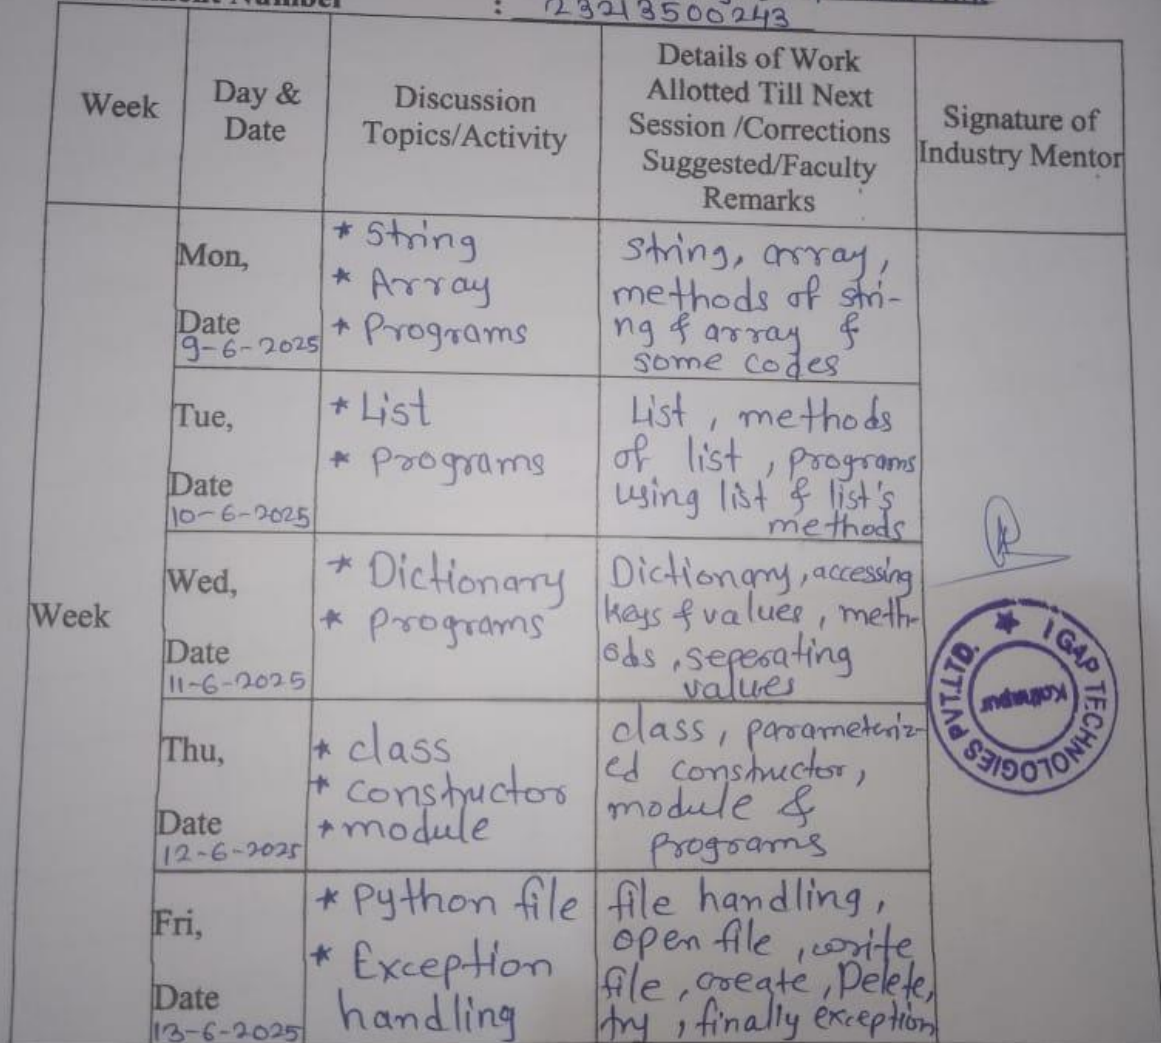 ment Number : 23213500243
Week
Day &
Date
Discussion
Topics/Activity
Details of Work
Allotted Till Next
Session /Corrections
Suggested/Faculty
Remarks
Signature of
Industry Mentor
Week
Mon,
Date
9-6-2025
* String
* Array
* Programs
String, array,
methods of stri-
ng & array &
some codes
Tue,
Date
10-6-2025
* List
* Programs
List, methods
of list, programs
using list & list's
methods
Wed,
Date
11-6-2025
* Dictionary
* Programs
Dictionary, accessing
keys & values, meth-
ods, seperating
values
Thu,
Date
12-6-2025
* class
* constructor
* module
class, parameteriz-
ed constructor,
module &
programs
Fri,
Date
13-6-2025
* Python file
* Exception
handling
file handling,
open file, write
file, create, Delete,
try, finally exception
I GAP TECHNOLOGIES PVT.LTD.
Kolhapur